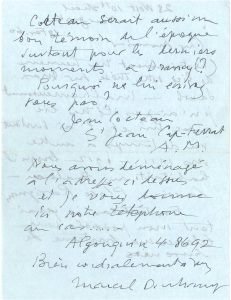 Cocteau serait aussi un
bon témoin de l'époque
surtout pour les derniers
moments à Drancy?
Pourquoi ne lui écrivez
vous pas?
Jean Cocteau
St Jean Cap-Ferrat
A. M.
Nous avons déménagé
à l'adresse ci dessus
et je vous donne
ici notre téléphone
au cas
Algonquin 4-8692
Bien cordialement à vous
Marcel Duchamp